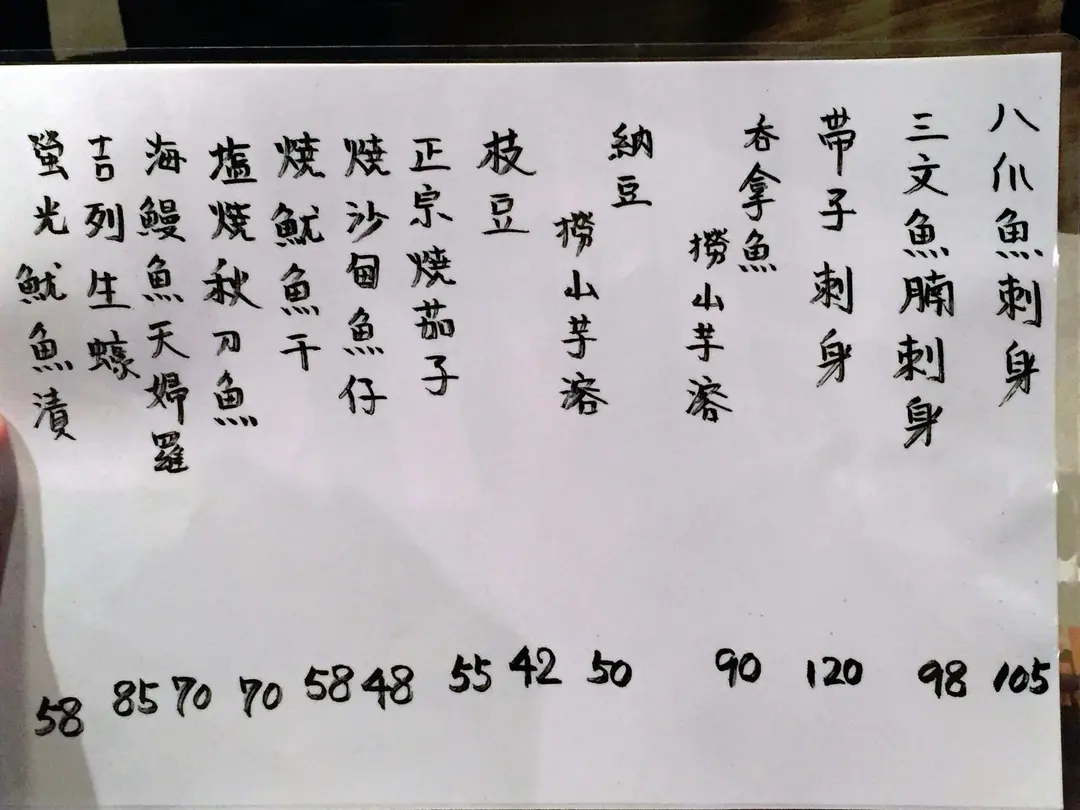 八爪魚刺身
105
三文魚腩刺身
98
帶子刺身
120
吞拿魚
撈山芋溶
90
納豆
撈山芋溶
50
枝豆
42
正宗燒茄子
55
燒沙甸魚仔
48
燒魷魚干
58
塩燒秋刀魚
70
海鰻魚天婦羅
70
吉列生蠔
85
螢光魷魚漬
58